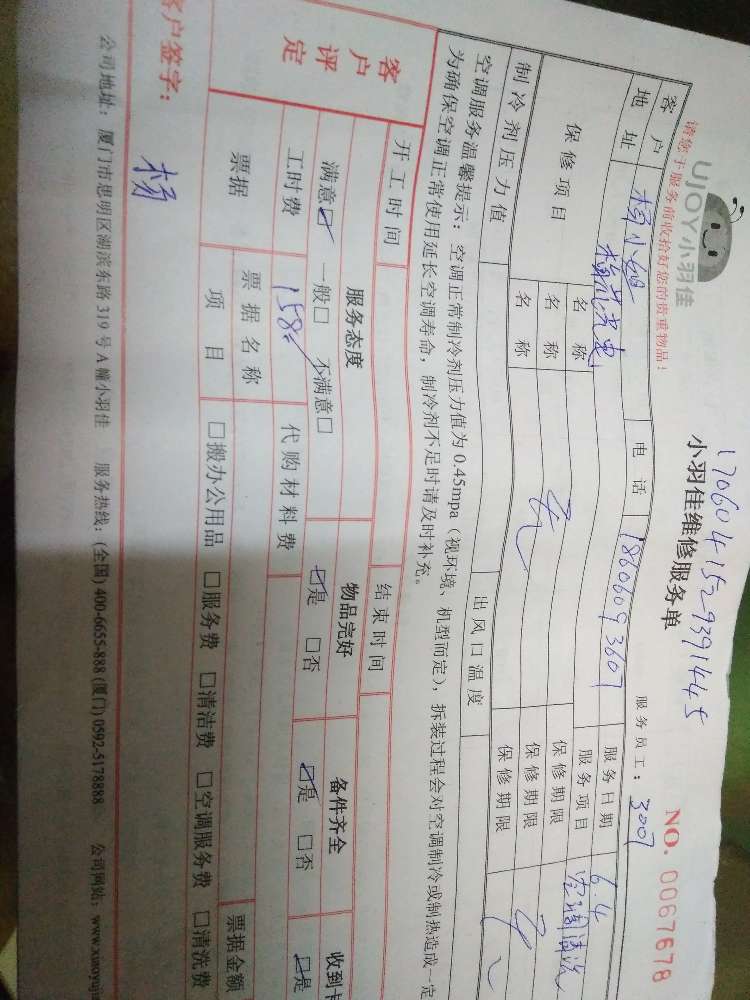 1706041529391445
UJOY小羽佳
小羽佳维修服务单
NO. 0067678
请您于服务前收拾好您的贵重物品!
服务员工: 3007
客户 杨小姐 电话 18606093607 服务日期 6.4
地址 服务项目 空调清洗
保修项目 名称 无 保修期限
名称 保修期限
名称 保修期限
制冷剂压力值 出风口温度
空调服务温馨提示:空调正常制冷剂压力值为 0.45mpa(视环境、机型而定),拆装过程会对空调制冷或制热造成一定
为确保空调正常使用延长空调寿命,制冷剂不足时请及时补充。
开工时间 结束时间
客户评定 服务态度 物品完好 备件齐全 收到卡
满意☑ 一般□ 不满意□ ☑是 □否 ☑是 □否 ☑是
工时费 158 代购材料费
票据 票据名称 票据金额
项目 □搬办公用品 □服务费 □清洁费 □空调服务费 □清洗费
客户签字: 杨
公司地址:厦门市思明区湖滨东路 319 号 A 幢小羽佳 服务热线:(全国) 400-6655-888 (厦门) 0592-5178888 公司网站:www.xiaoyuji